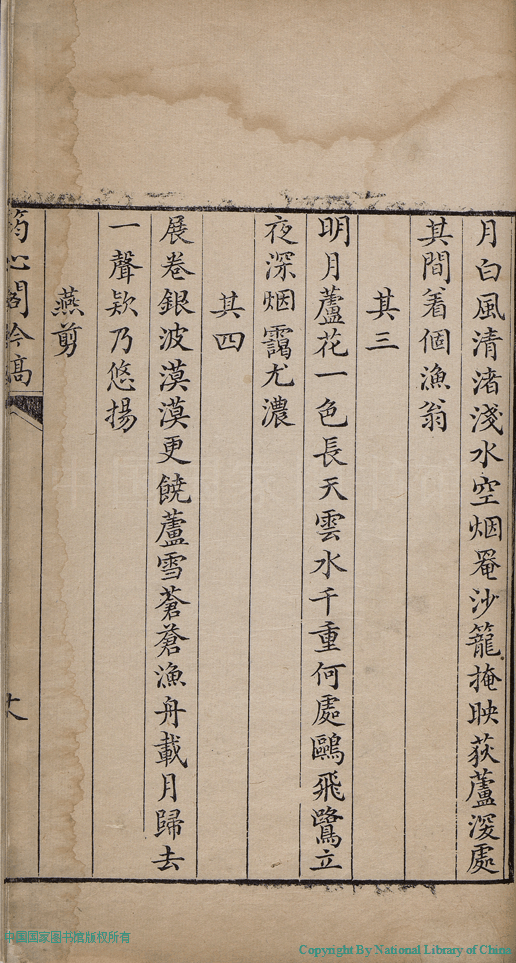 月白風清渚淺水空烟罨沙籠掩映荻蘆深處
其間着個漁翁
其三
明月蘆花一色長天雲水千重何處鷗飛鷺立
夜深烟靄尤濃
其四
展卷銀波漠漠更饒蘆雪蒼蒼漁舟載月歸去
一聲欵乃悠揚
燕剪
筠心閣吟稿
中国国家图书馆版权所有
Copyright By National Library of China